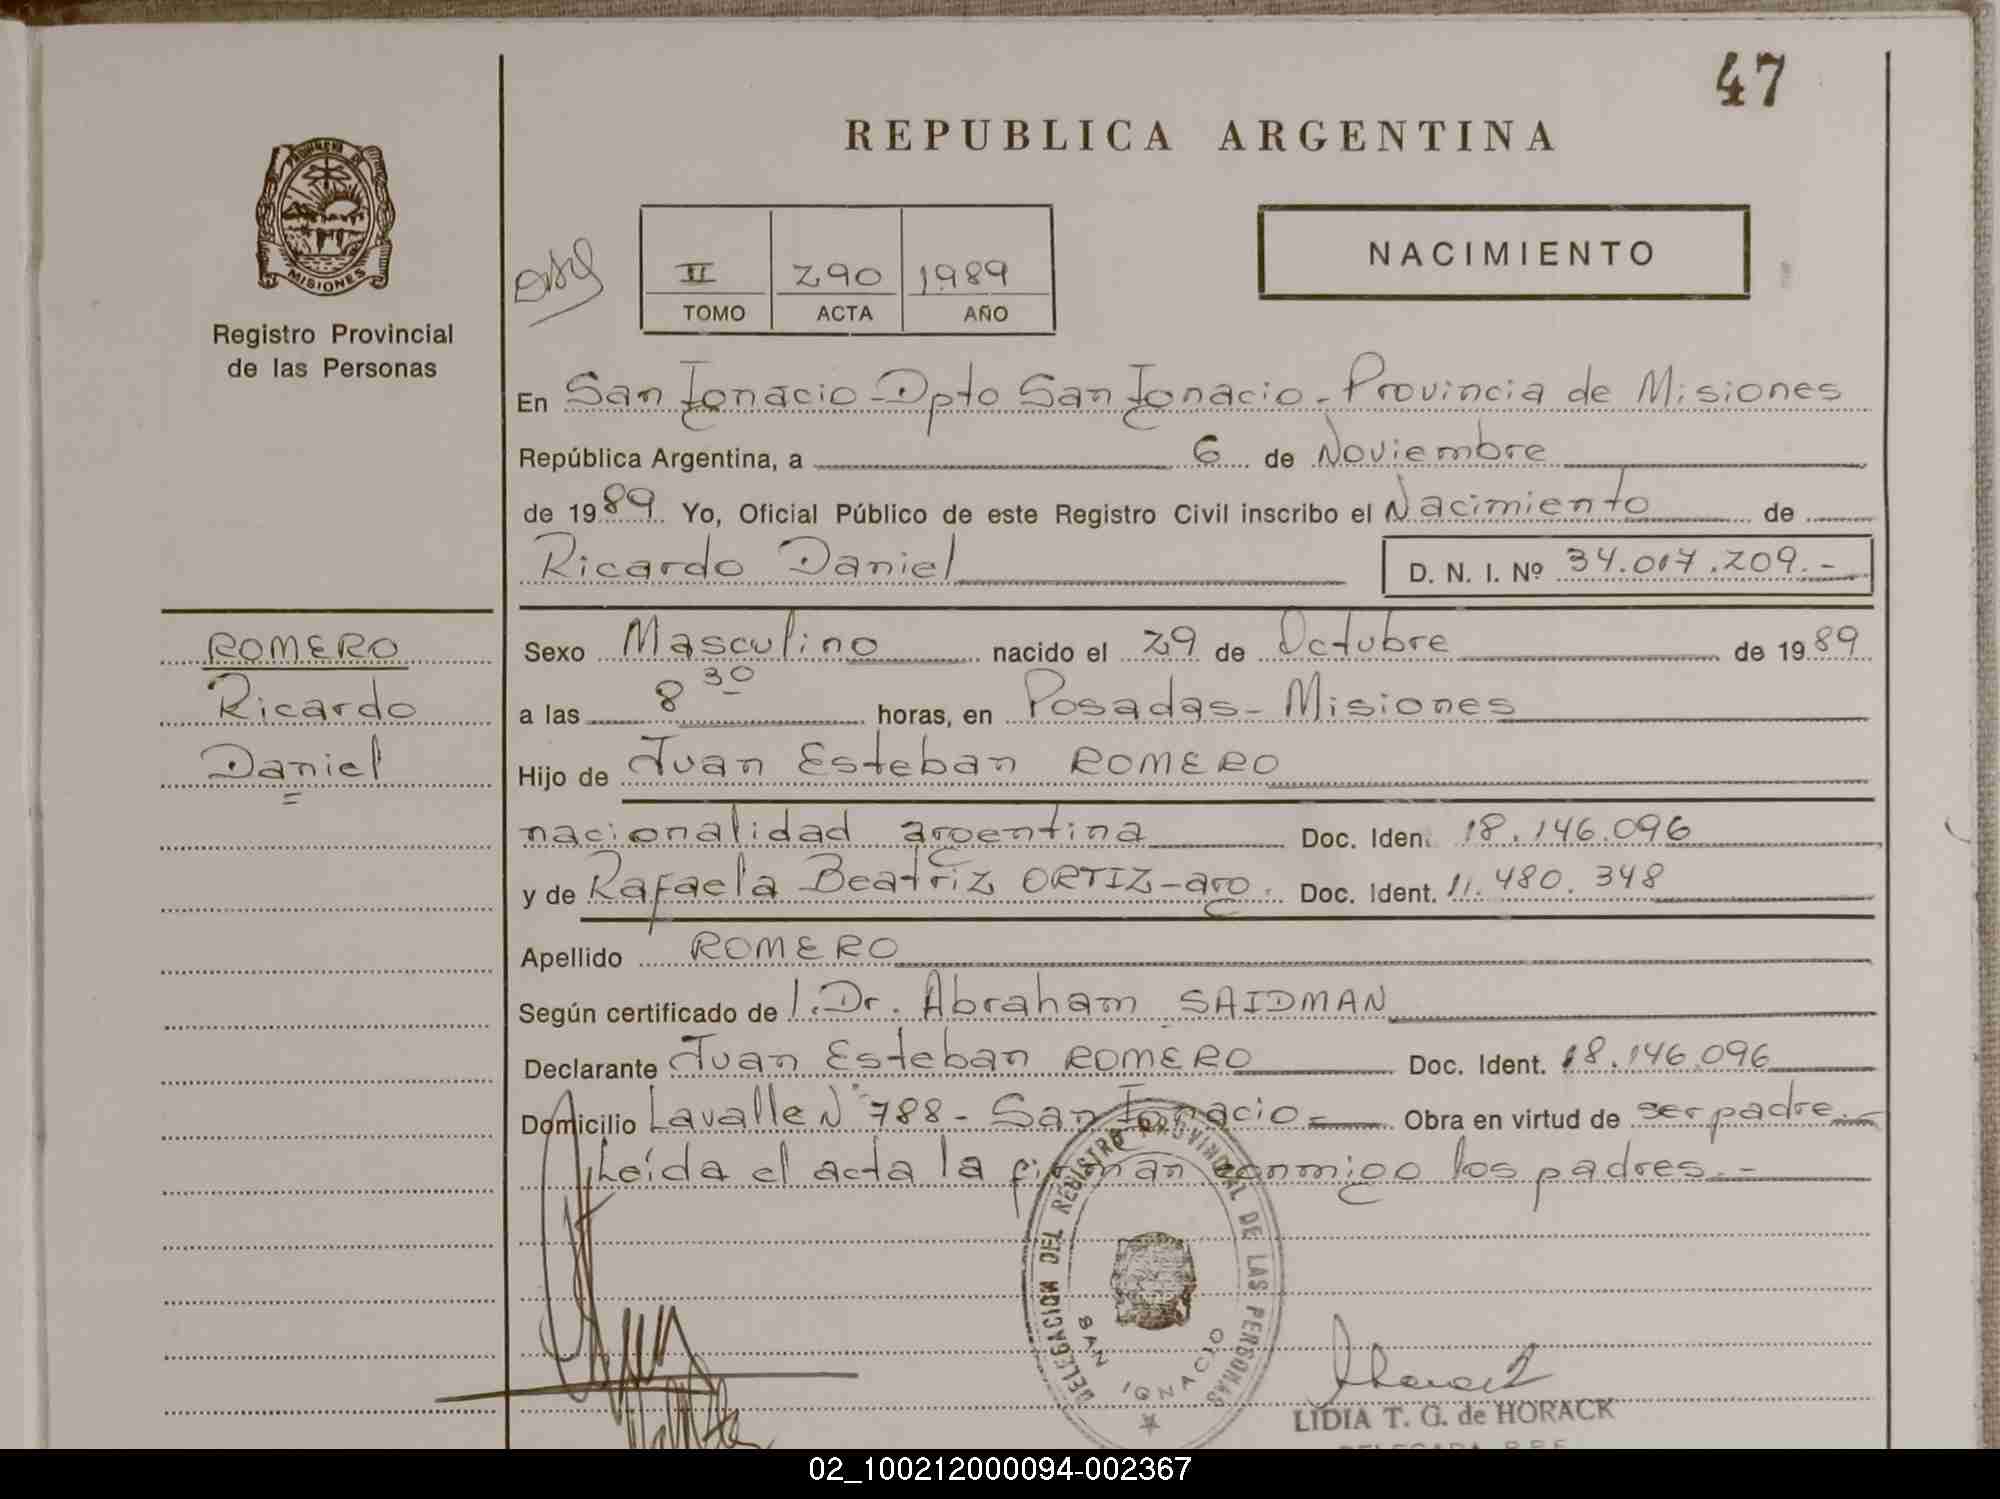 47
REPUBLICA ARGENTINA
PROVINCIA DE
MISIONES
Registro Provincial
de las Personas
II 290 1989
TOMO ACTA AÑO
NACIMIENTO
En San Ignacio - Dpto San Ignacio - Provincia de Misiones
República Argentina, a 6 de Noviembre
de 1989 Yo, Oficial Público de este Registro Civil inscribo el Nacimiento de
Ricardo Daniel D. N. I. Nº 34.017.209.-
ROMERO
Ricardo
Daniel
Sexo Masculino nacido el 29 de Octubre de 1989
a las 8 30 horas, en Posadas - Misiones
Hijo de Juan Esteban ROMERO
nacionalidad argentina Doc. Iden. 18.146.096
y de Rafaela Beatriz ORTIZ - arg. Doc. Ident. 11.480.348
Apellido ROMERO
Según certificado de l. Dr. Abraham SAIDMAN
Declarante Juan Esteban ROMERO Doc. Ident. 18.146.096
Domicilio Lavalle Nº 788 - San Ignacio = Obra en virtud de ser padre.-
Leída el acta la firman conmigo los padres.-
DELEGACION DEL REGISTRO PROVINCIAL DE LAS PERSONAS
SAN IGNACIO
LIDIA T. G. de HORACK
02_100212000094-002367